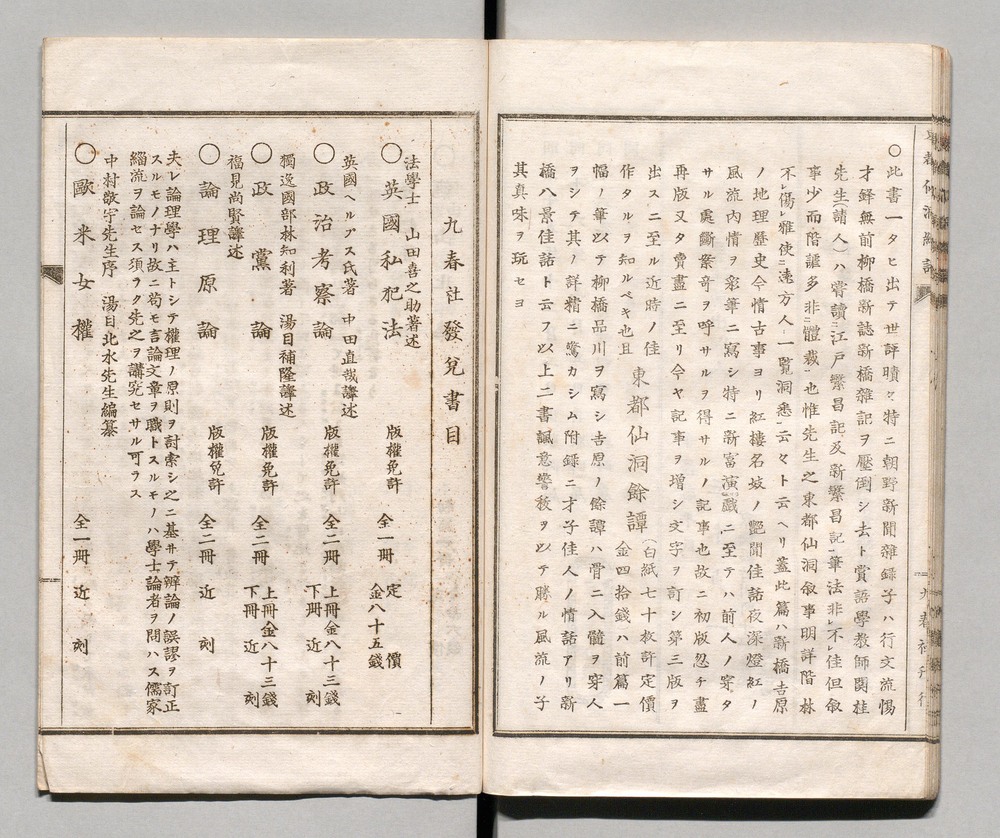 ○此書一タヒ出テ世評嘖々特ニ朝野新聞雑錄子ハ行文流惕
才鋅無前柳橋新誌新橋雜記ヲ壓倒シ去ト賞語學教師関桂
先生(諸人)ハ嘗讀江戸繁昌記及新繁昌記筆法非レ不レ佳但叙
事少而階謳多非體裁也惟先生之東都仙洞叙事明詳階林
不レ傷レ雅使遠方人一覧洞悉云々ト云ヘリ蓋此篇ハ新橋吉原
ノ地理歴史今情古事ヨリ紅樓名妓ノ艷聞佳話夜深燈紅ノ
風流内情ヲ彩筆ニ寫シ特ニ新富演戲ニ至テハ前人ノ穿タ
サル處斷案奇ヲ呼サルヲ得サルノ記事也故ニ初版忽チ盡
再版又タ賣盡ニ至リ今ヤ記事ヲ増シ文字ヲ訂シ第三版ヲ
出スニ至ル近時ノ佳
作タルヲ知ルベキ也且
東都仙洞餘譚
(白紙七十枚許定價
金四拾錢ハ前篇一
幅ノ筆以テ柳橋品川ヲ寫シ吉原ノ餘譚ハ骨ニ入髓ヲ穿人
ヲシテ其ノ詳精ニ驚カシム附錄ニ才子佳人ノ情話アリ新
橋八景佳話ト云フ以上二書諷意警教ヲ以テ勝ル風流ノ子
其真味ヲ玩セヨ
九春社發兌書目
法學士 山田喜之助著述
○英國私犯法 版權免許 全一冊 定價金八十五錢
英國ヘルプス氏著 中田直哉譯述
○政治考察論 版權免許 全二冊 上冊金八十三錢 下冊近刻
獨逸國部林知利著 湯目補隆譯述
○政黨論 版權免許 全二冊 上冊金八十三錢 下冊近刻
福見尚賢譯述
○論理原論 版權免許 全二冊 近刻
夫レ論理學ハ主トシテ權理ノ原則ヲ討索シ之ニ基キテ辨論ノ誤謬ヲ訂正
スルモノナリ故ニ苟モ言論文章ヲ職トスルモノハ學士論者ヲ問ハス儒家
緇流ヲ論セス須ラク先之ヲ講究セサル可ラス
中村敬宇先生序 湯目北水先生編纂
○歐米女權 全一冊 近刻